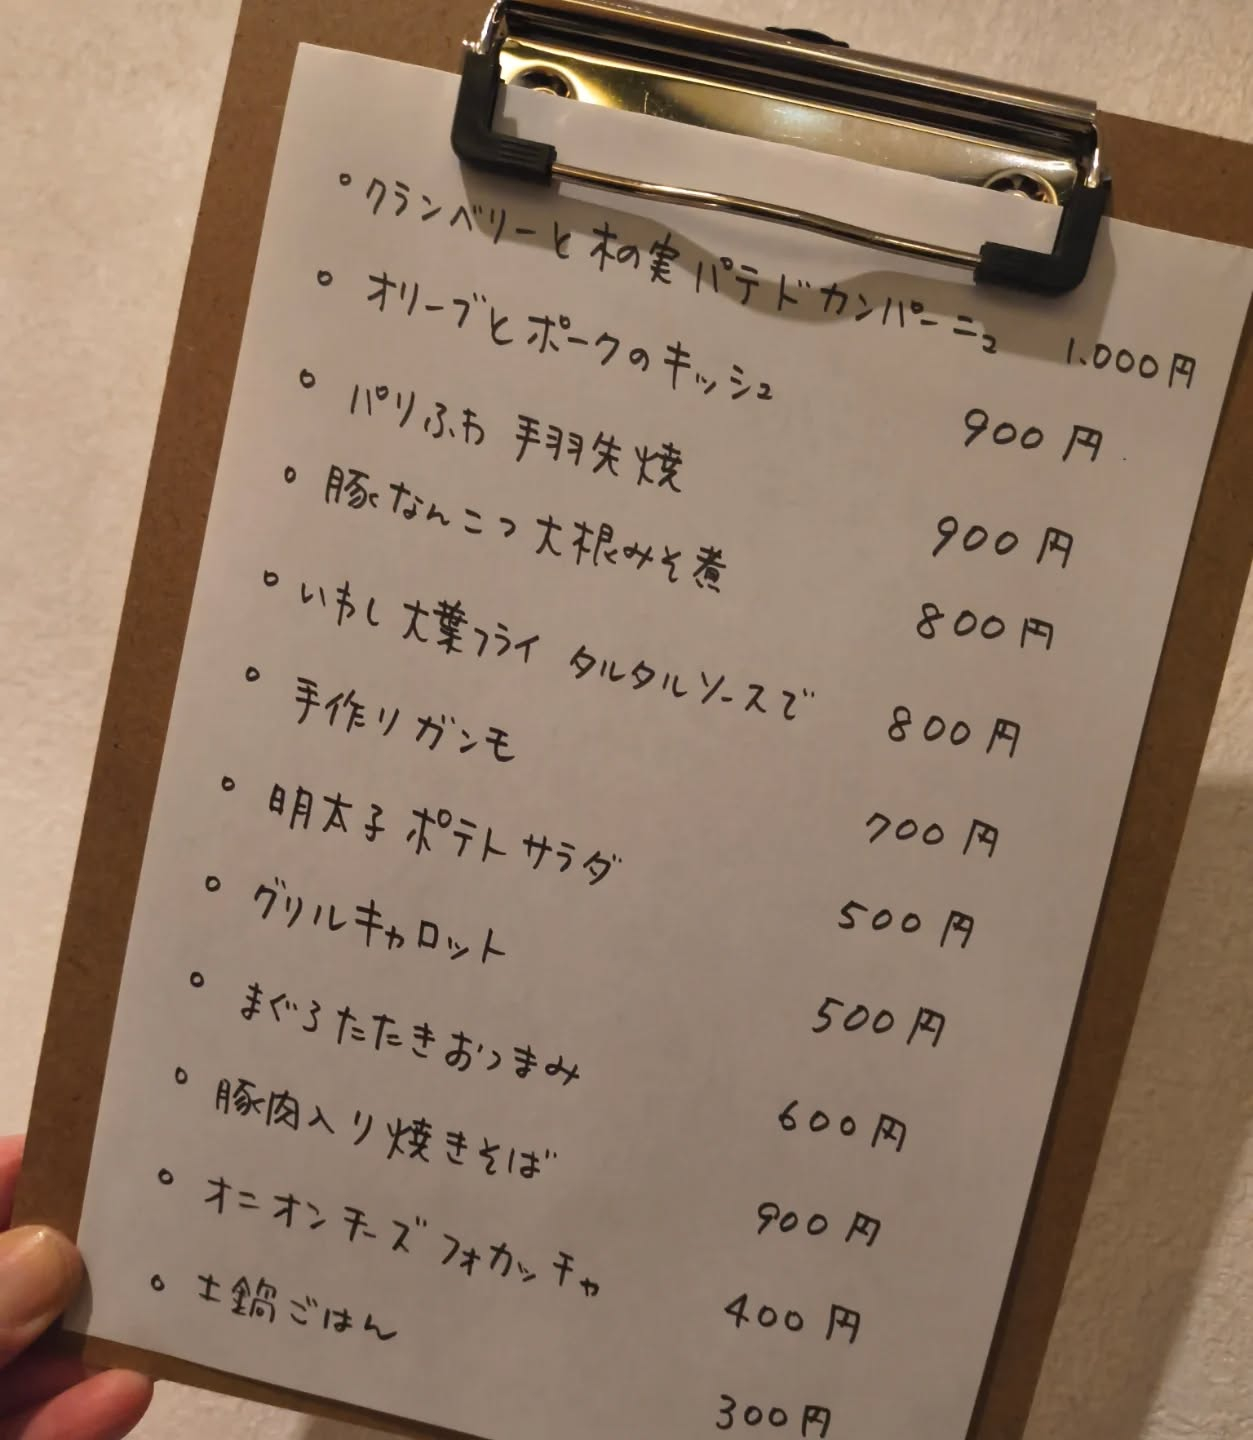 • クランベリーと木の実 パテ ド カンパーニュ 1.000円
• オリーブとポークのキッシュ 900円
• パリふわ 手羽先焼 900円
• 豚なんこつ大根みそ煮 800円
• いわし大葉フライ タルタルソースで 800円
• 手作りガンモ 700円
• 明太子ポテトサラダ 500円
• グリルキャロット 500円
• まぐろたたきおつまみ 600円
• 豚肉入り焼きそば 900円
• オニオンチーズフォカッチャ 400円
• 土鍋ごはん 300円